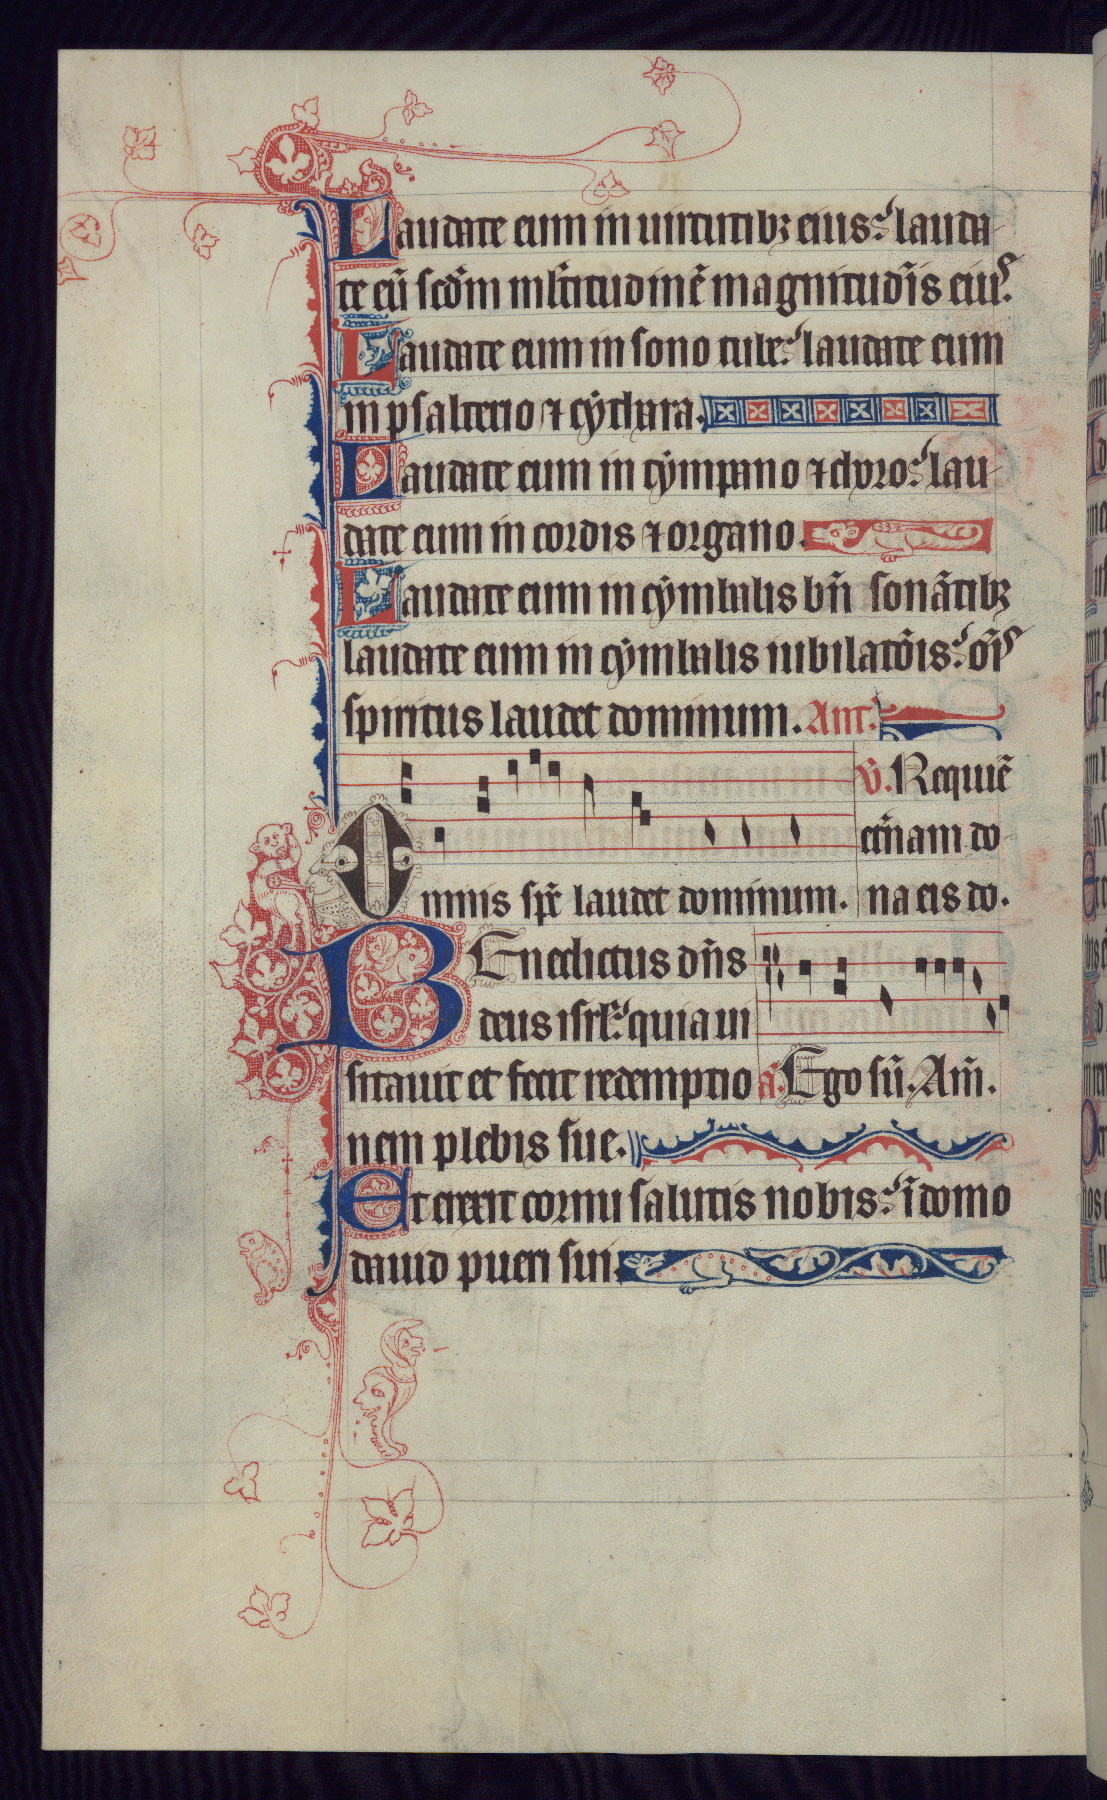 Laudate eum in uirtutibꝫ eius: lauda
te eū scd̄m ml̄titudinē magnitudīs eius.
Laudate eum in sono tube: laudate eum
in psalterio ⁊ cythara.
Laudate eum in tympano ⁊ choro: lau
date eum in cordis ⁊ organo.
Laudate eum in cymbalis bn̄ sonātibꝫ
laudate eum in cymbalis iubilatōis: om̄s
spiritus laudet dominum. Ant.
℣. Requiē
et̄nam do
Omnis sp̄c laudet dominum.
na eis do.
BEnedictus dn̄s
deus isrl̄: quia ui
sitauit et fecit redemptio
a. Ego sū. Am̄.
nem plebis sue.
Et erexit cornu salutis nobis: ī domo
dauid pueri sui.